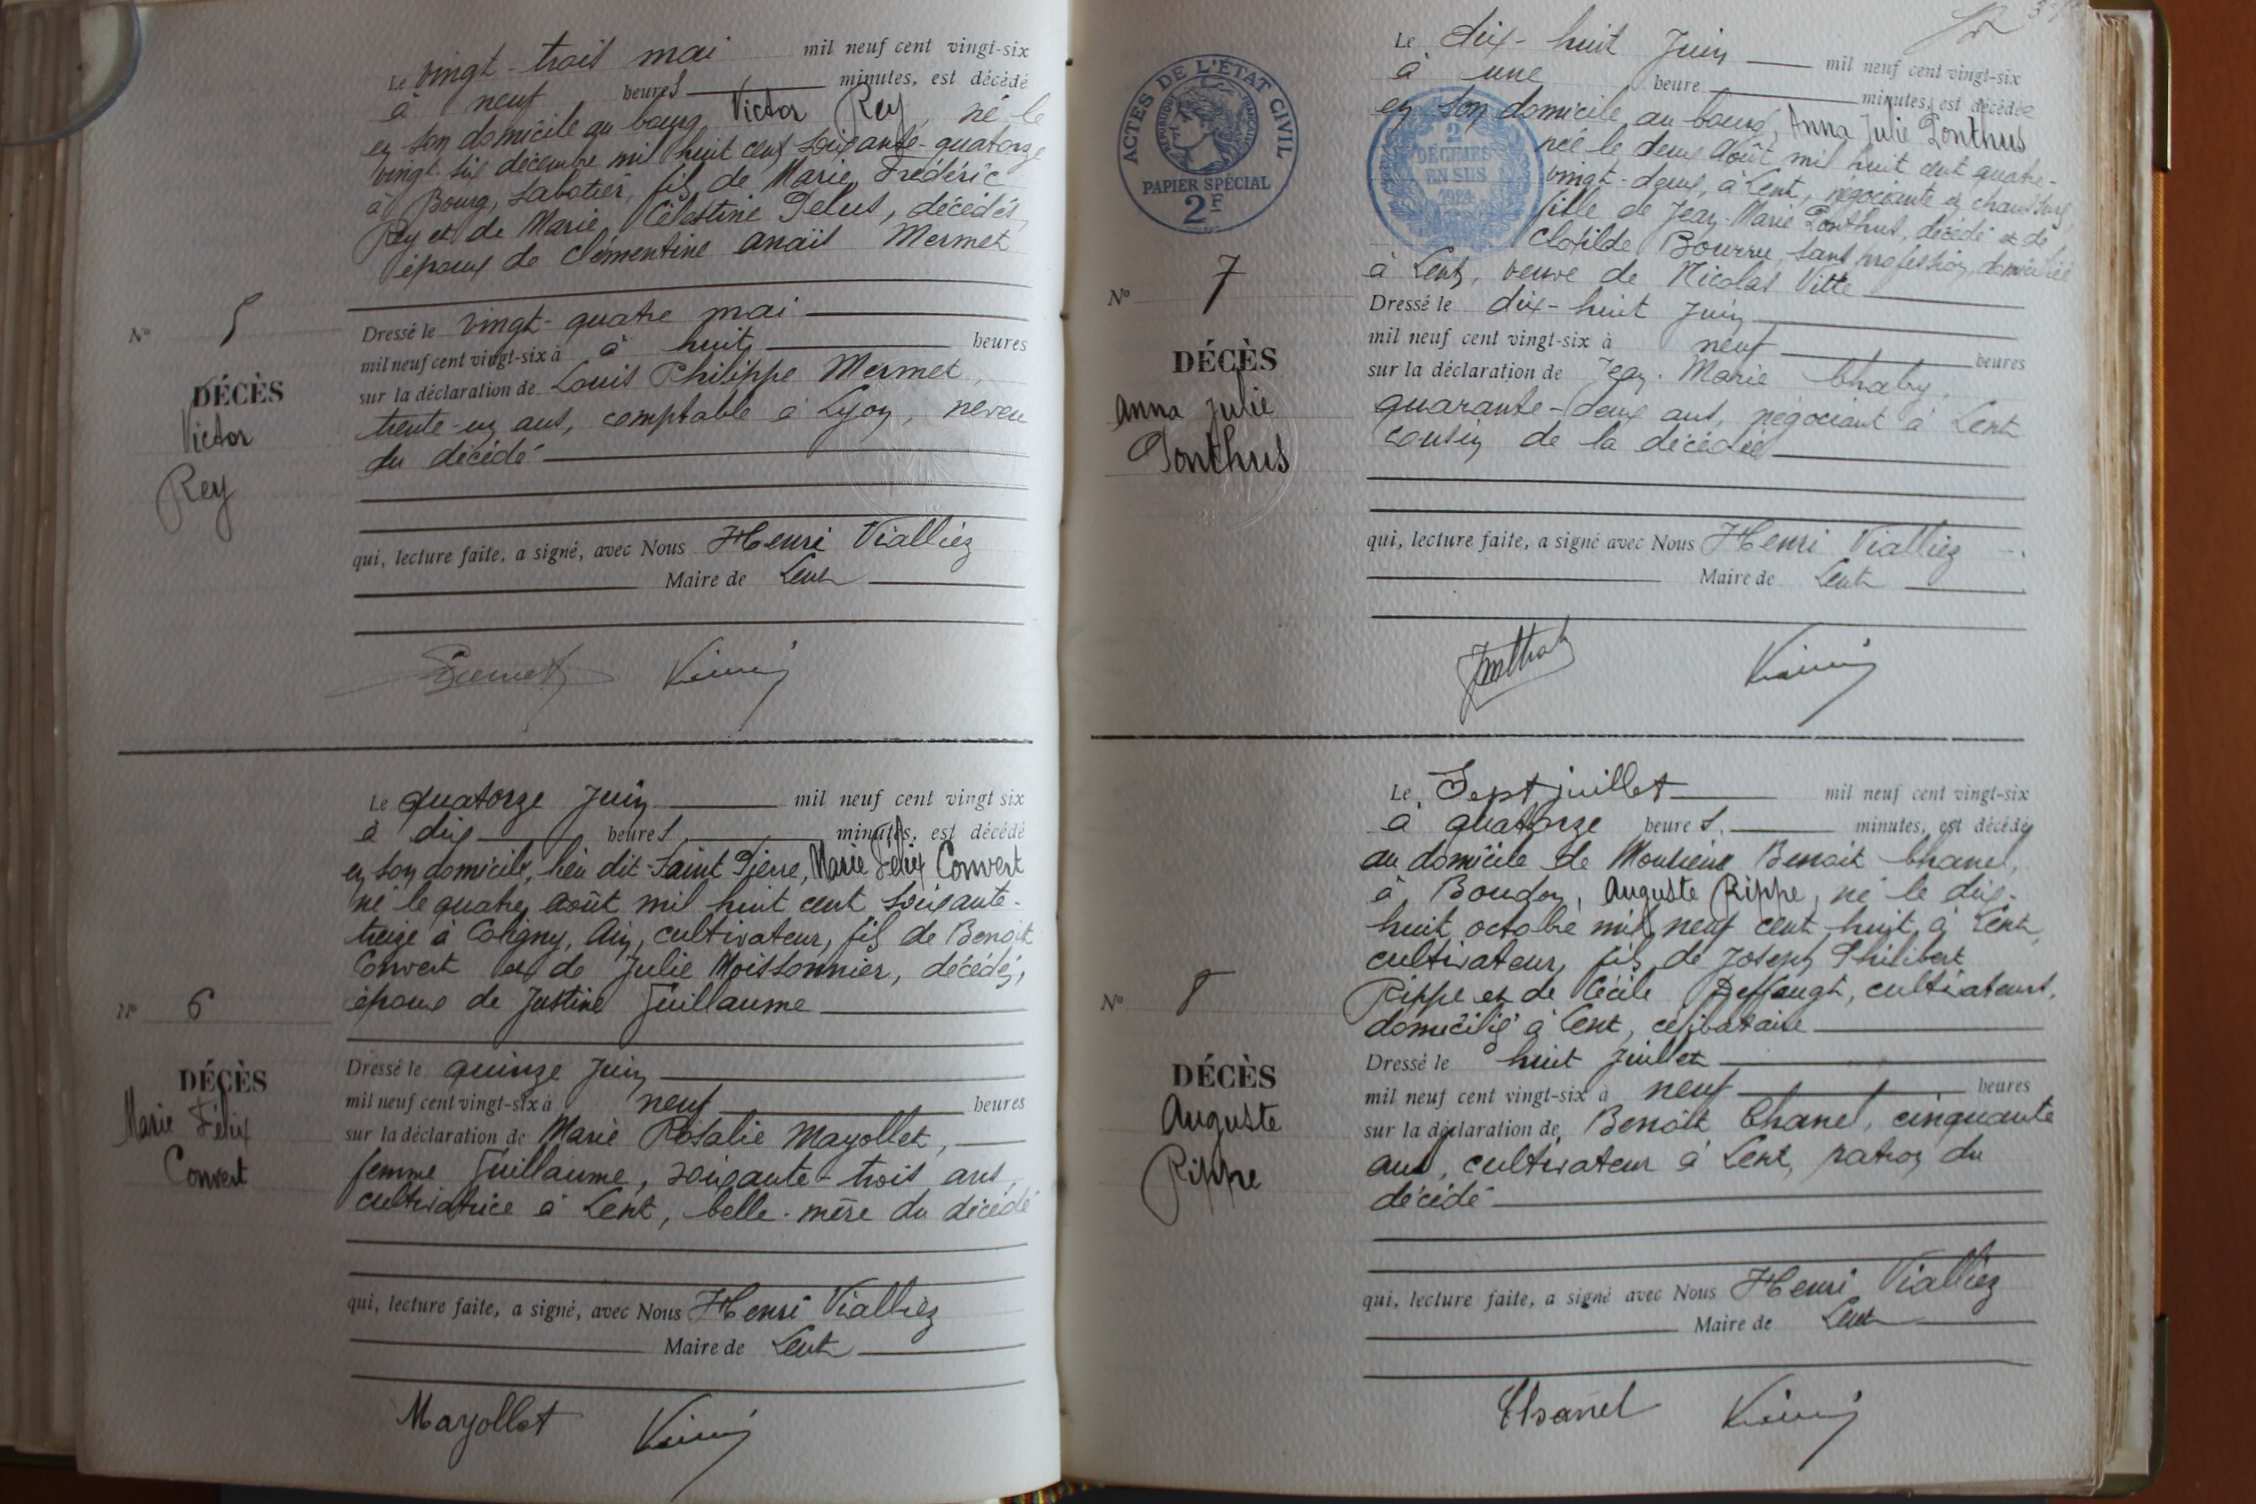 Le vingt-trois mai mil neuf cent vingt-six
à neuf heures minutes, est décédé
en son domicile au bourg, Victor Rey, né le
vingt six décembre mil huit cent soixante-quatorze
à Bourg, sabotier, fils de Marie Frédéric
Rey et de Marie Célestine Pelus, décédés,
époux de Clémentine Anaïs Mermet
Nº 5
DÉCÈS
Victor
Rey
Dressé le vingt-quatre mai
mil neuf cent vingt-six à à huit heures
sur la déclaration de Louis Philippe Mermet,
trente-un ans, comptable à Lyon, neveu
du décédé
qui, lecture faite, a signé, avec Nous Henri Vialliez
Maire de Lent
Le quatorze Juin mil neuf cent vingt six
à dix heures minutes, est décédé
en son domicile, lieu dit Saint Pierre, Marie Félix Convert
né le quatre août mil huit cent soixante-
treize à Coligny, Ain, cultivateur, fils de Benoit
Convert et de Julie Moissonnier, décédés,
époux de Justine Guillaume
Nº 6
DÉCÈS
Marie Félix
Convert
Dressé le quinze Juin
mil neuf cent vingt-six à neuf heures
sur la déclaration de Marie Rosalie Mayollet,
femme Guillaume, soixante-trois ans,
cultivatrice à Lent, belle-mère du décédé
qui, lecture faite, a signé, avec Nous Henri Vialliez
Maire de Lent
Mayollet
ACTES DE L'ÉTAT CIVIL
PAPIER SPÉCIAL
2F
2
DÉCIMES
EN SUS
1924
Le dix-huit Juin mil neuf cent vingt-six
à une heure minutes, est décédée
en son domicile au bourg, Anna Julie Ponthus
née le deux Août mil huit cent quatre-
vingt-deux, à Lent, négociante en chaussures,
fille de Jean-Marie Ponthus, décédé et de
Clotilde Bourru, sans profession, domiciliée
à Lent, veuve de Nicolas Vitte
Nº 7
DÉCÈS
Anna Julie
Ponthus
Dressé le dix-huit Juin
mil neuf cent vingt-six à neuf heures
sur la déclaration de Jean-Marie Chaby,
quarante-deux ans, négociant à Lent
cousin de la décédée
qui, lecture faite, a signé avec Nous Henri Vialliez
Maire de Lent
Le Sept juillet mil neuf cent vingt-six
à quatorze heures, minutes, est décédé
au domicile de Monsieur Benoit Chanel,
à Boudon, Auguste Rippe, né le dix-
huit octobre mil neuf cent huit, à Lent,
cultivateur, fils de Joseph Philibert
Rippe et de Cécile Deffaugt, cultivateurs,
domiciliés à Lent, célibataire
Nº 8
DÉCÈS
Auguste
Rippe
Dressé le huit Juillet
mil neuf cent vingt-six à neuf heures
sur la déclaration de Benoît Chanel, cinquante
ans, cultivateur à Lent, patron du
décédé
qui, lecture faite, a signé avec Nous Henri Vialliez
Maire de Lent
Chanel